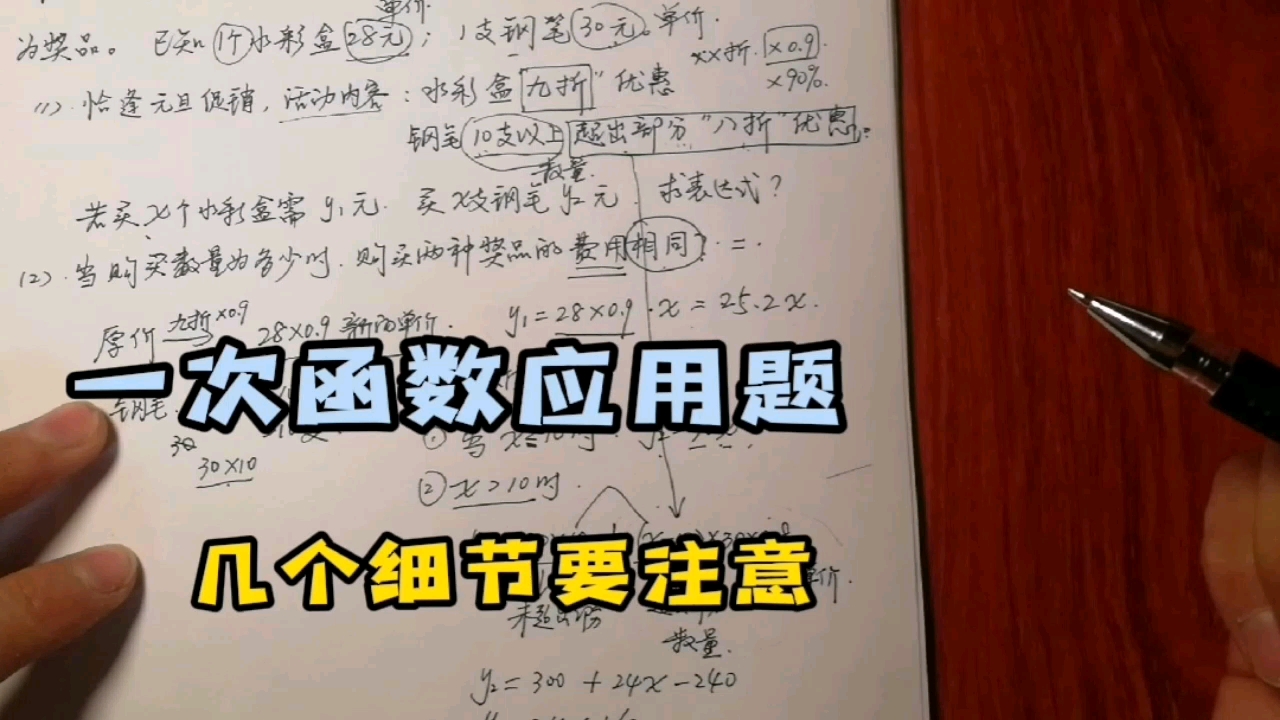 单价.
为奖品。已知1个水彩盒28元; 1支钢笔30元。单价.
xx折. ×0.9.
×90%.
(1). 恰逢元旦促销, 活动内容: 水彩盒"九折"优惠
钢笔10支以上超出部分"八折"优惠。
数量.
若买x个水彩盒需y₁元. 买x支钢笔y₂元. 求表达式?
(2). 当购买数量为多少时. 购买两种奖品的费用相同?. =.
原价 九折 ×0.9 28×0.9 新的单价. y₁=28×0.9.x=25.2x.
一次函数应用题
钢笔.
30
30×10
② x>10时.
几个细节要注意
未超出部分
数量.
y₂=300+24x-240